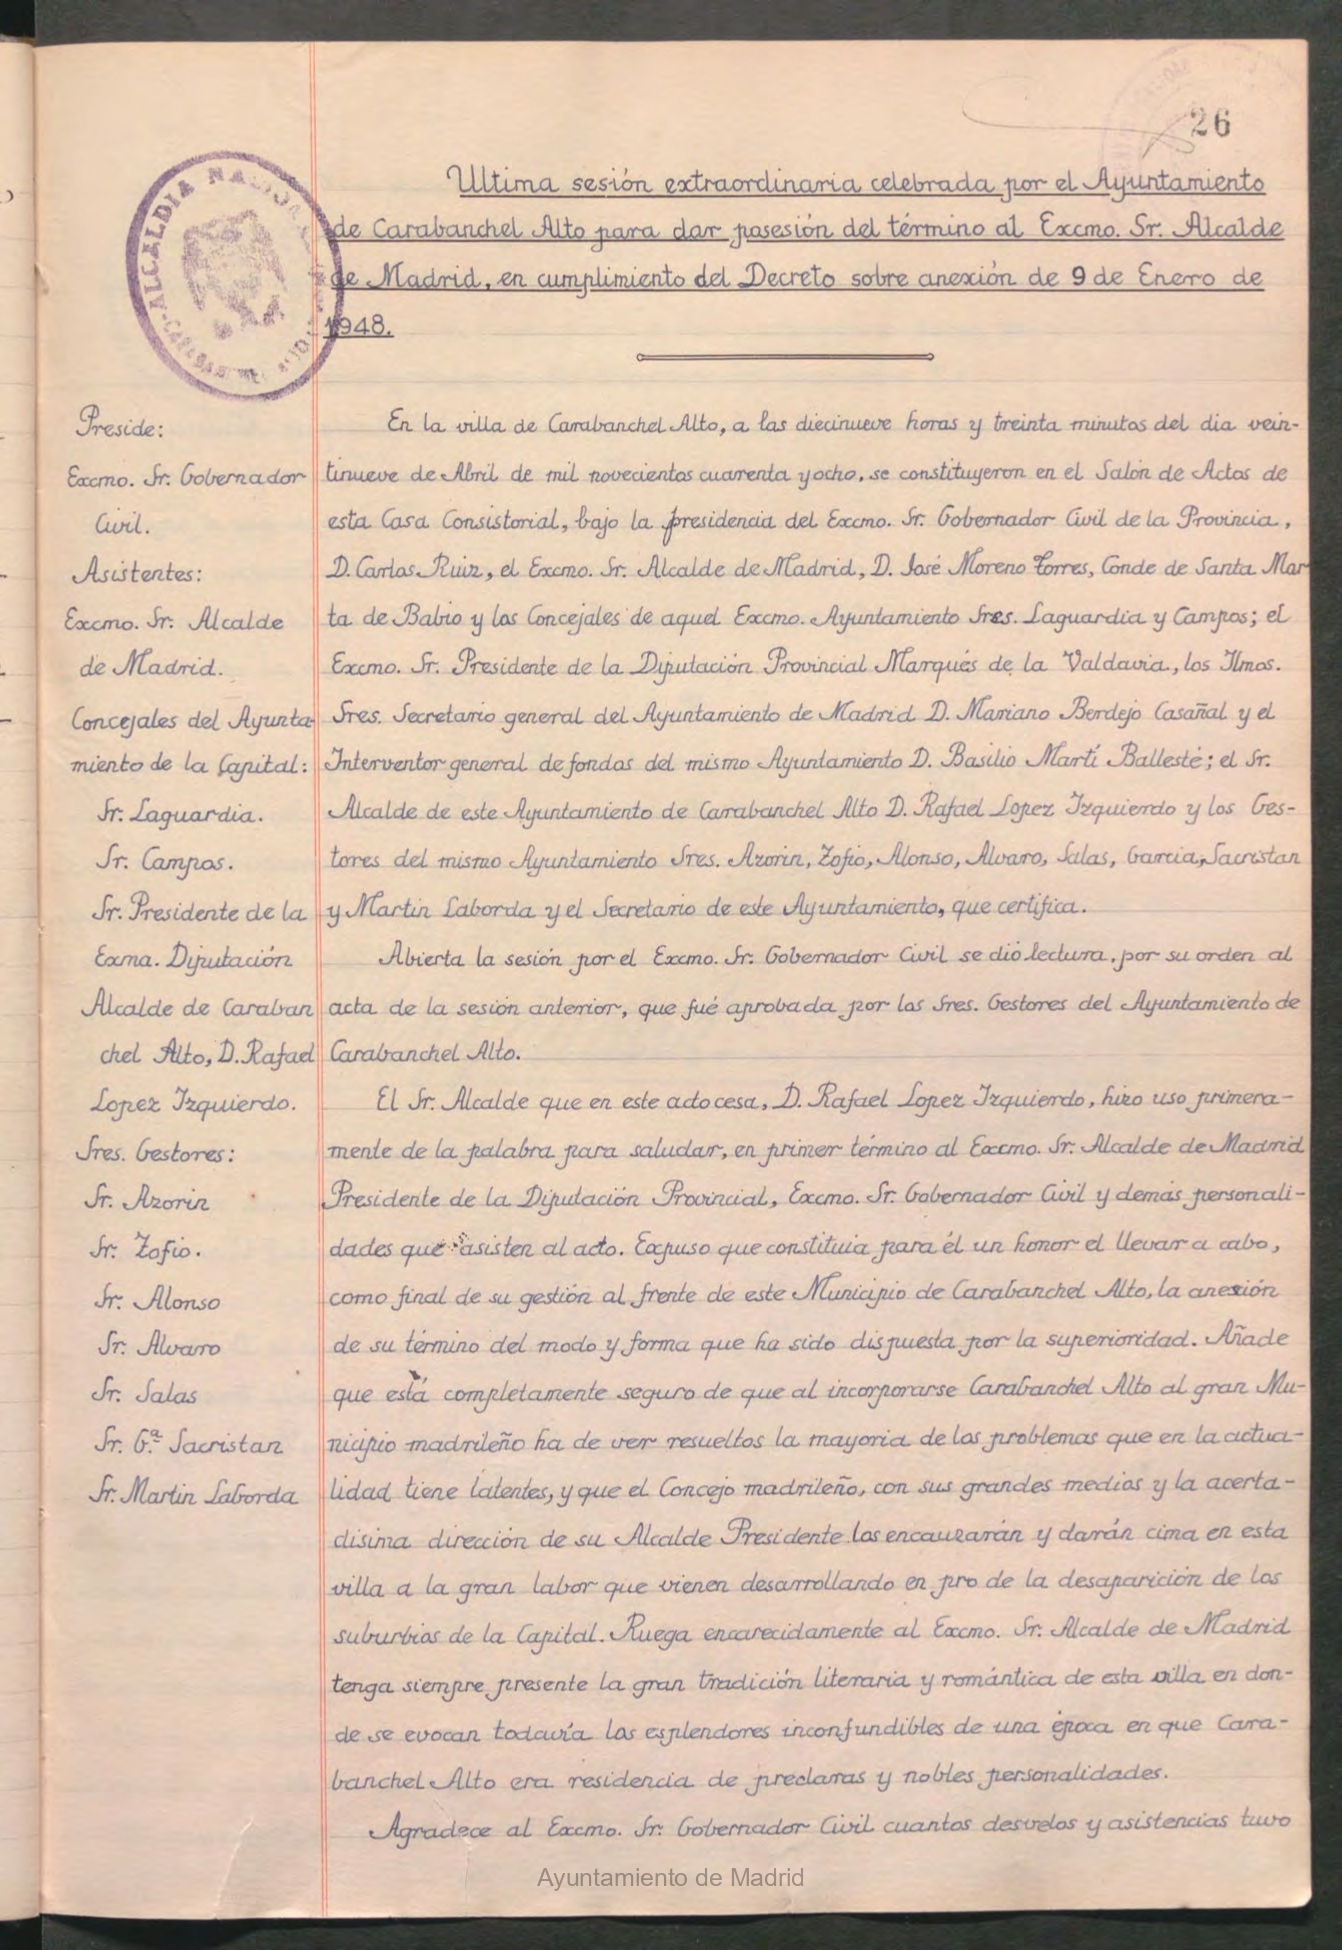 26
Ultima sesión extraordinaria celebrada por el Ayuntamiento
de Carabanchel Alto para dar posesión del término al Excmo. Sr. Alcalde
de Madrid, en cumplimiento del Decreto sobre anexión de 9 de Enero de
1948.
ALCALDIA NACIONAL
Preside:
Excmo. Sr. Gobernador
Civil.
Asistentes:
Excmo. Sr. Alcalde
de Madrid.
Concejales del Ayunta-
miento de la Capital:
Sr. Laguardia.
Sr. Campos.
Sr. Presidente de la
Exma. Diputación
Alcalde de Caraban
chel Alto, D. Rafael
Lopez Izquierdo.
Sres. Gestores:
Sr. Azorin
Sr. Zofio.
Sr. Alonso
Sr. Alvaro
Sr. Salas
Sr. G.ª Sacristan
Sr. Martin Laborda
En la villa de Carabanchel Alto, a las diecinueve horas y treinta minutos del dia vein-
tinueve de Abril de mil novecientos cuarenta y ocho, se constituyeron en el Salón de Actos de
esta Casa Consistorial, bajo la presidencia del Excmo. Sr. Gobernador Civil de la Provincia,
D. Carlos Ruiz, el Excmo. Sr. Alcalde de Madrid, D. José Moreno Torres, Conde de Santa Mar
ta de Babio y los Concejales de aquel Excmo. Ayuntamiento Sres. Laguardia y Campos; el
Excmo. Sr. Presidente de la Diputación Provincial Marqués de la Valdavia, los Ilmos.
Sres. Secretario general del Ayuntamiento de Madrid D. Mariano Berdejo Casañal y el
Interventor general de fondos del mismo Ayuntamiento D. Basilio Martí Ballesté; el Sr.
Alcalde de este Ayuntamiento de Carabanchel Alto D. Rafael Lopez Izquierdo y los Ges-
tores del mismo Ayuntamiento Sres. Azorin, Zofio, Alonso, Alvaro, Salas, Garcia, Sacristan
y Martin Laborda y el Secretario de este Ayuntamiento, que certifica.
Abierta la sesión por el Excmo. Sr. Gobernador Civil se dió lectura, por su orden al
acta de la sesión anterior, que fué aprobada por los Sres. Gestores del Ayuntamiento de
Carabanchel Alto.
El Sr. Alcalde que en este acto cesa, D. Rafael Lopez Izquierdo, hizo uso primera-
mente de la palabra para saludar, en primer término al Excmo. Sr. Alcalde de Madrid
Presidente de la Diputación Provincial, Excmo. Sr. Gobernador Civil y demás personali-
dades que asisten al acto. Expuso que constituia para él un honor el llevar a cabo,
como final de su gestión al frente de este Municipio de Carabanchel Alto, la anexión
de su término del modo y forma que ha sido dispuesta por la superioridad. Añade
que está completamente seguro de que al incorporarse Carabanchel Alto al gran Mu-
nicipio madrileño ha de ver resueltos la mayoria de los problemas que en la actua-
lidad tiene latentes, y que el Concejo madrileño, con sus grandes medios y la acerta-
disima dirección de su Alcalde Presidente los encauzarán y darán cima en esta
villa a la gran labor que vienen desarrollando en pro de la desaparición de los
suburbios de la Capital. Ruega encarecidamente al Excmo. Sr. Alcalde de Madrid
tenga siempre presente la gran tradición literaria y romántica de esta villa en don-
de se evocan todavía los esplendores inconfundibles de una época en que Cara-
banchel Alto era residencia de preclaras y nobles personalidades.
Agradece al Excmo. Sr. Gobernador Civil cuantos desvelos y asistencias tuvo
Ayuntamiento de Madrid